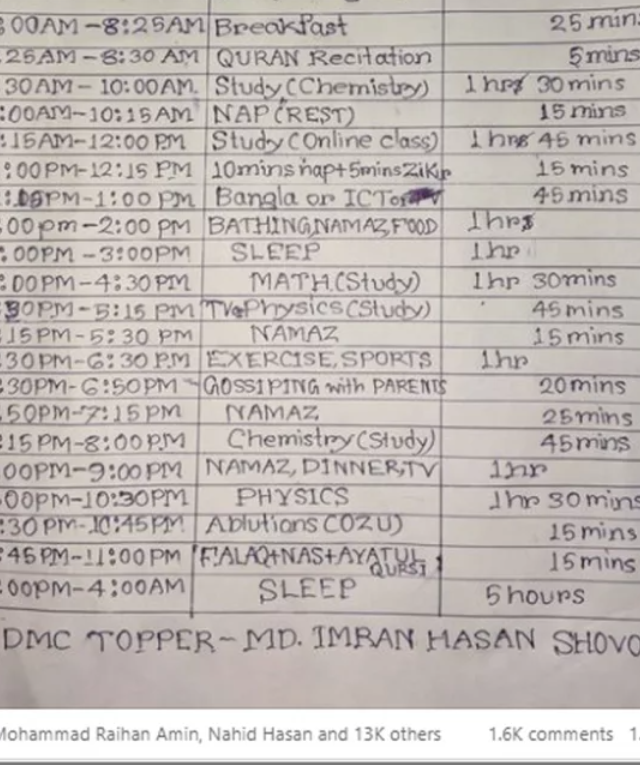 :00AM-8:25AM Breakfast 25 mins
:25AM-8:30 AM QURAN Recitation 5mins
:30AM-10:00AM. Study (Chemistry) 1 hrs 30 mins
:00AM-10:15AM NAP (REST) 15 mins
:15AM-12:00 PM Study (Online class) 1 hrs 45 mins
:00PM-12:15 PM 10mins nap+5minsZikr 15 mins
:15PM-1:00 PM Bangla or ICT 45 mins
:00pm-2:00 PM BATHING,NAMAZ,FOOD 1hrs
:00PM-3:00PM SLEEP 1hr
:00PM-4:30PM MATH.(Study) 1hr 30mins
:30PM-5:15 PM Physics (Study) 45 mins
:15PM-5:30 PM NAMAZ 15 mins
:30PM-6:30 P.M EXERCISE,SPORTS 1hr
:30PM-6:50PM GOSSIPING with PARENTS 20mins
:50PM-7:15PM NAMAZ 25mins
:15PM-8:00P.M Chemistry (Study) 45mins
:00PM-9:00PM NAMAZ, DINNER,TV 1hr
:00PM-10:30PM PHYSICS 1hr 30 mins
:30 PM-10:45PM Ablutions (OZU) 15 mins
:45PM-11:00PM FALAQ+NAS+AYATUL QURSI 15 mins
:00PM-4:00AM SLEEP 5hours
DMC TOPPER- MD. IMRAN HASAN SHOVO
Mohammad Raihan Amin, Nahid Hasan and 13K others 1.6K comments